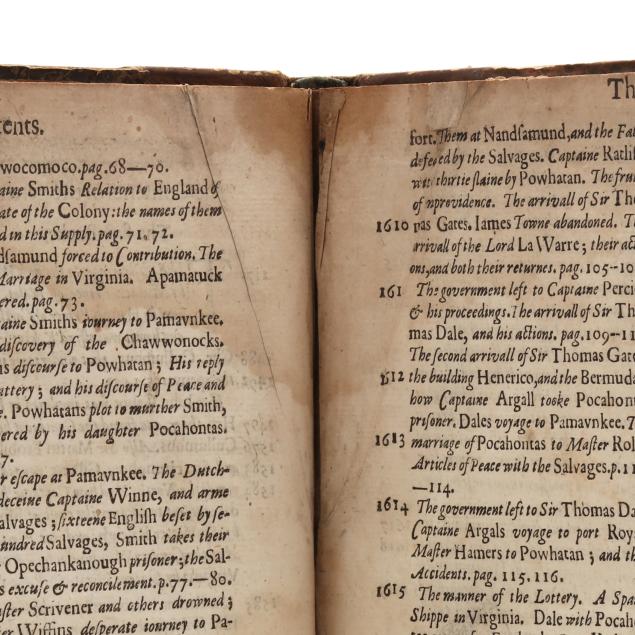 tents.
wocomoco.pag.68—70.
aine Smiths Relation to England of
ate of the Colony: the names of them
d in this Supply.pag.71.72.
dsamund forced to Contribution. The
Marriage in Virginia. Apamatuck
ered.pag.73.
aine Smiths iourney to Pamavnkee.
discovery of the Chawwonocks.
is discourse to Powhatan; His reply
attery; and his discourse of Peace and
e. Powhatans plot to murther Smith,
ered by his daughter Pocahontas.
7.
r escape at Pamavnkee. The Dutch-
deceine Captaine Winne, and arme
alvages; sixteene English beset by se-
undred Salvages, Smith takes their
r Opechankanough prisoner; the Sal-
s excuse & reconcilement.p.77.—80.
ster Scrivener and others drowned;
er Wiffins desperate iourney to Pa-
Th
fort. Them at Nandsamund, and the Fat
defeced by the Salvages. Captaine Ratli
with thirtie slaine by Powhatan. The fru
of nprevidence. The arrivall of Sir Tho
1610 mas Gates. Iames Towne abandoned. T
arrivall of the Lord La Warre; their act
ons, and both their returnes. pag.105—10
161 The government left to Captaine Percie
& his proceedings. The arrivall of Sir Th
mas Dale, and his actions. pag.109—11
The second arrivall of Sir Thomas Gate
1612 the building Henerico, and the Bermuda
how Captaine Argall tooke Pocahont
prisoner. Dales voyage to Pamavnkee. T
1613 marriage of Pocahontas to Master Rol
Articles of Peace with the Salvages.p.11
—114.
1614 The government left to Sir Thomas Da
Captaine Argals voyage to port Roy
Master Hamers to Powhatan; and th
Accidents. pag. 115.116.
1615 The manner of the Lottery. A Spa
Shippe in Virginia. Dale with Pocahon